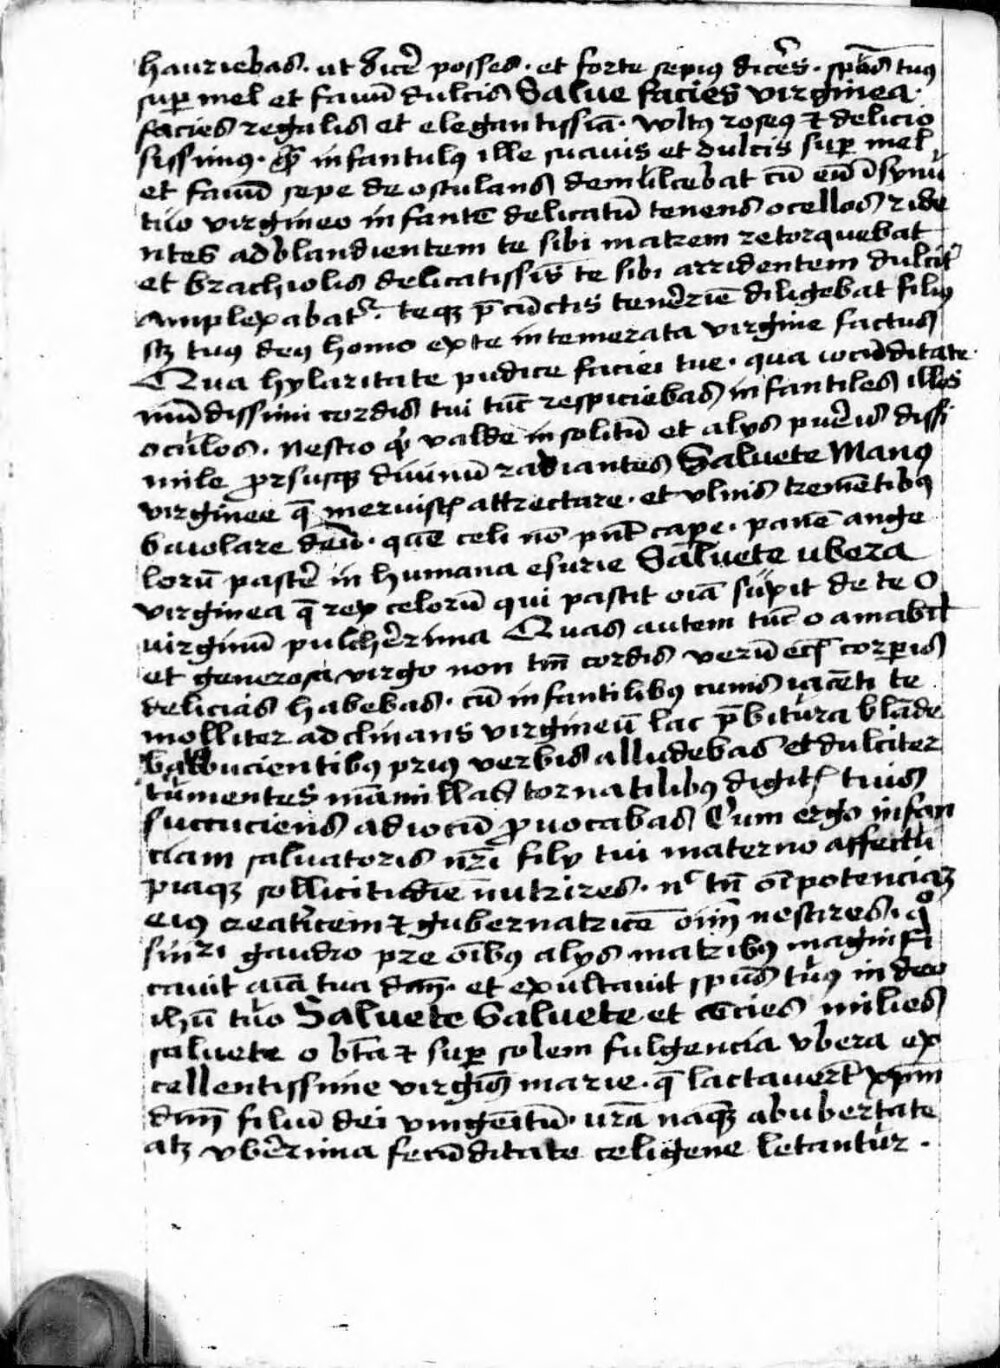 hauriebas · ut dicẽ posses · et forte sepius dicẽs · spũs tuus
sup mel et fauũ dulcis Salue facies virginea ·
facies regalis et elegantissiã · vltus roseus et delicio
sissimus · infantulus ille suauis et dulcis sup mel
et fauũ sepe deosculans demulcebat cũ eũ ĩ synu
tuo virgineo infantẽ delicatũ tenens ocellos ride
ntes ad blandientem te sibi matrem retorquebat
et brachiolis delicatissis te sibi arridentem dulcit
amplexabatr · teqȝ p̃ cũctis tenẽriẽ diligebat filius
sȝ tuus deus homo ex te intemerata virgine factus
Qua hylaritate pudice faciei tue · qua iocũditate
mũdissimi cordis tui tũc respiciebas infantiles illos
oculos · nescio qȝ valde insolitũ et alys puẽris dissi
mile prsusqȝ diuinũ radiantes Saluete Manus
virginee q̃ meruistis attrectare · et vlnis tremẽtibus
baiolare deũ · quẽ celi nõ pñt cape · panẽ ange
lorũ pascẽ in humana esurie Saluete ubera
virginea q̃ rex celorũ qui pascit oĩa sũxit de te O
uirginũ pulchẽrima Quas autem tũc o amabil
et generosa virgo non tm̃ cordis verũ ecĩ corpis
delicias habebas · cũ infantilibus cunis iacẽti te
molliter adclinans virgineũ lac p̃bitura blãde
balbucientibus prius verbis alludebas et dulciter
tumentes mãmillas tornatilibus digitis tuis
succuciens ad iocũ prouocabas Cum ergo infan
ciam saluatoris nr̃i fily tui materno affectu
piaqȝ sollicitudĩe nutrires · nc tñ oĩpotenciaȝ
eius creatricem et gubernatricẽ oĩm nescires · qo
singri gaudio pre oĩbus alys matribus magnifi
cauit aĩa tua dnm̃ · et exultauit spũs tuus in deo
ihũ tuo Saluete Saluete et cẽcies milies
saluete o bt̃a et sup solem fulgencia vbera ex
cellentissime virgĩs marie · q̃ lactauerũt xpm̃
dnm̃ filiũ dei vnigẽitũ · vrã naqȝ ab ubertate
atȝ vbẽrima fecũditate celigene letantur ·